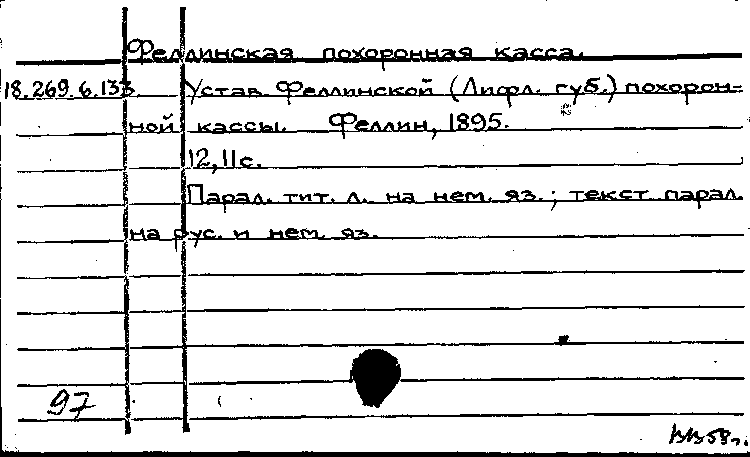 Феллинская похоронная касса.
18.269.6.133 Устав Феллинской (Лифл. губ.) похорон-
ной кассы. Феллин, 1895.
12, 11 с.
Парал. тит. л. на нем. яз.; текст парал.
на рус. и нем. яз.
97